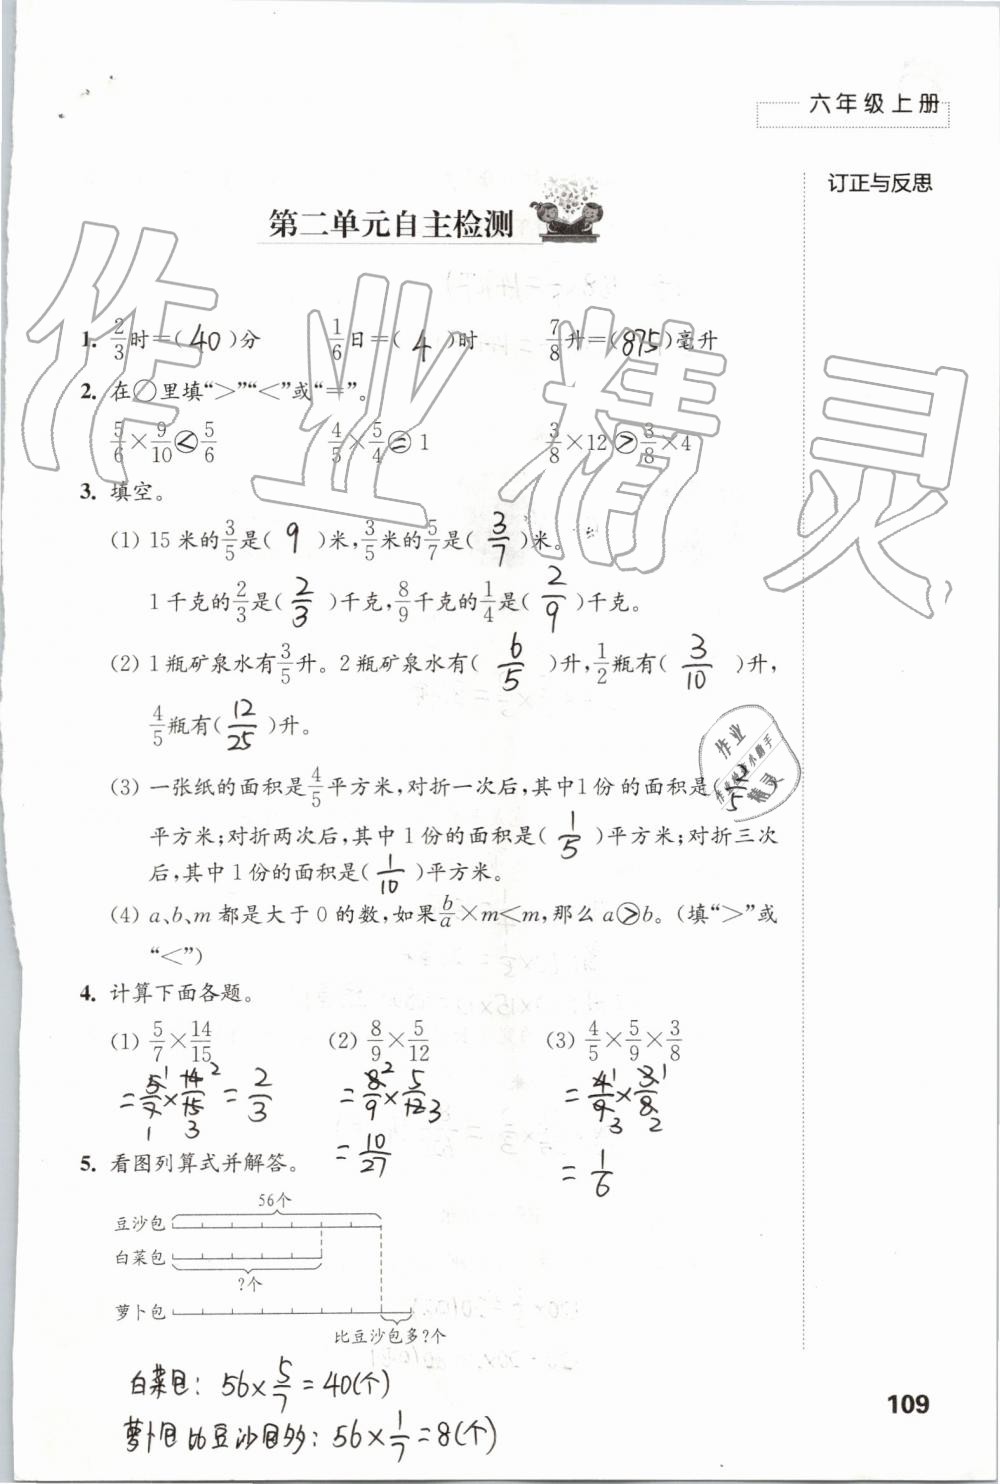 六年级上册
订正与反思
第二单元自主检测
1. 2/3时=(40)分 1/6日=(4)时 7/8升=(875)毫升
2. 在○里填“>”“<”或“=”。
5/6×9/10<5/6 4/5×5/4=1 3/8×12>3/8×4
3. 填空。
(1) 15米的3/5是(9)米,3/5米的5/7是(3/7)米。
1千克的2/3是(2/3)千克,8/9千克的1/4是(2/9)千克。
(2) 1瓶矿泉水有3/5升。2瓶矿泉水有(6/5)升,1/2瓶有(3/10)升,
4/5瓶有(12/25)升。
(3) 一张纸的面积是4/5平方米,对折一次后,其中1份的面积是(2/5
平方米;对折两次后,其中1份的面积是(1/5)平方米;对折三次
后,其中1份的面积是(1/10)平方米。
(4) a、b、m都是大于0的数,如果b/a×m<m,那么a>b。(填“>”或
“<”)
4. 计算下面各题。
(1) 5/7×14/15 (2) 8/9×5/12 (3) 4/5×5/9×3/8
=5/7×14/15=2/3 =8/9×5/12 =4/9×3/8
=10/27 =1/6
5. 看图列算式并解答。
56个
豆沙包
白菜包
?个
萝卜包
比豆沙包多?个
白菜包: 56×5/7=40(个)
萝卜包比豆沙包多: 56×1/7=8(个)
109
作业精灵
作业
精灵